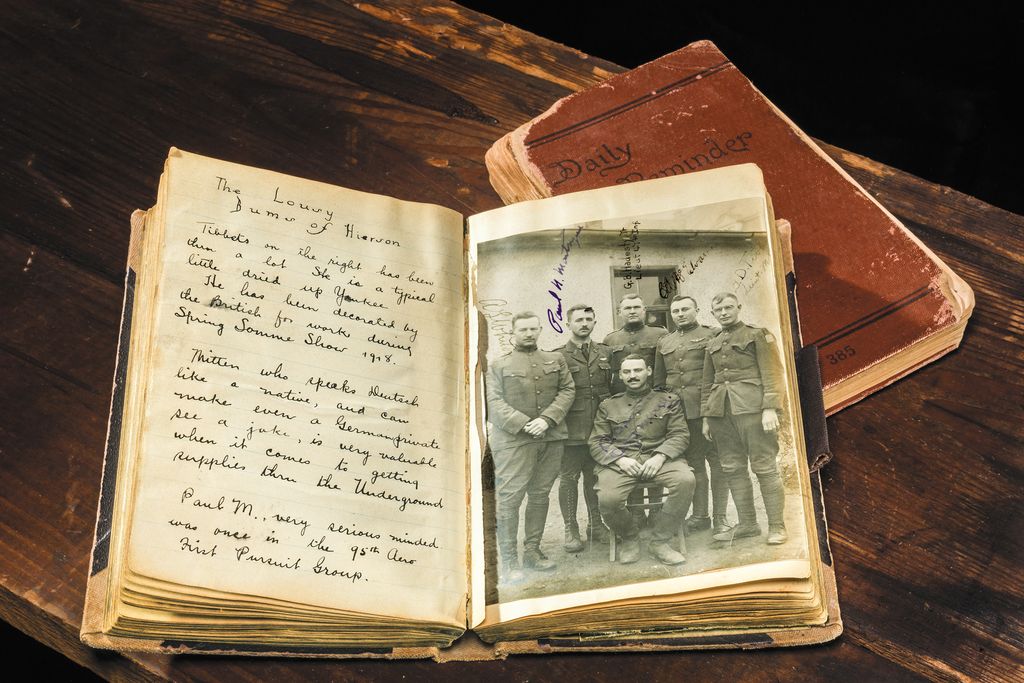 The Lousy
Bums of Hierson
Tibbets on the right has been
thru a lot She is a typical
little dried up Yankee
He has been decorated by
the British for work during
Spring Somme Show 1918.
Mitten who speaks Deutsch
like a native, and can
make even a German private
see a joke, is very valuable
when it comes to getting
supplies thru the Underground
Paul M., very serious minded
was once in the 95th Aero
First Pursuit Group.
Paul H. Montague
Daily
Reminder
385